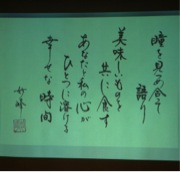 瞳を見つめ合って
語り
美味しいものを
共に食す
あなたと私の心が
ひとつに溶ける
幸せな時間